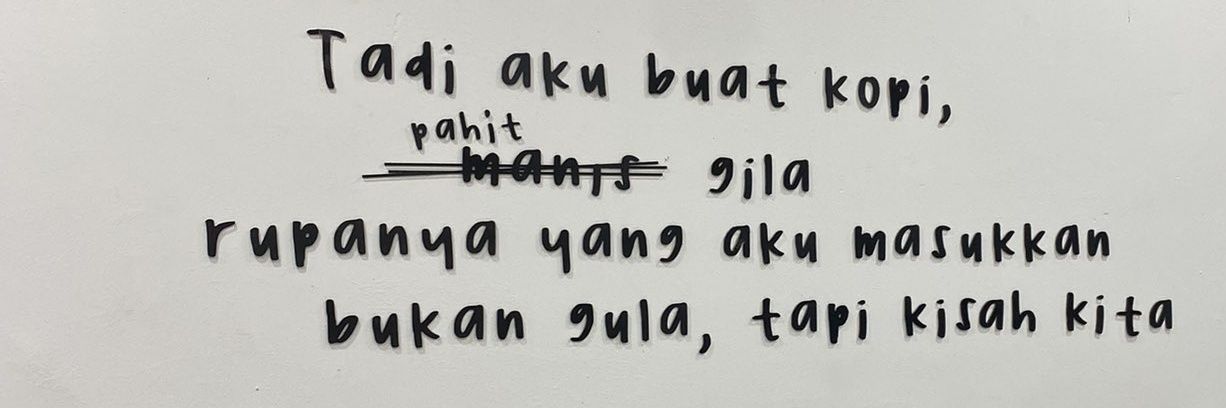 Tadi aku buat kopi,
pahit
manis gila
rupanya yang aku masukkan
bukan gula, tapi kisah kita